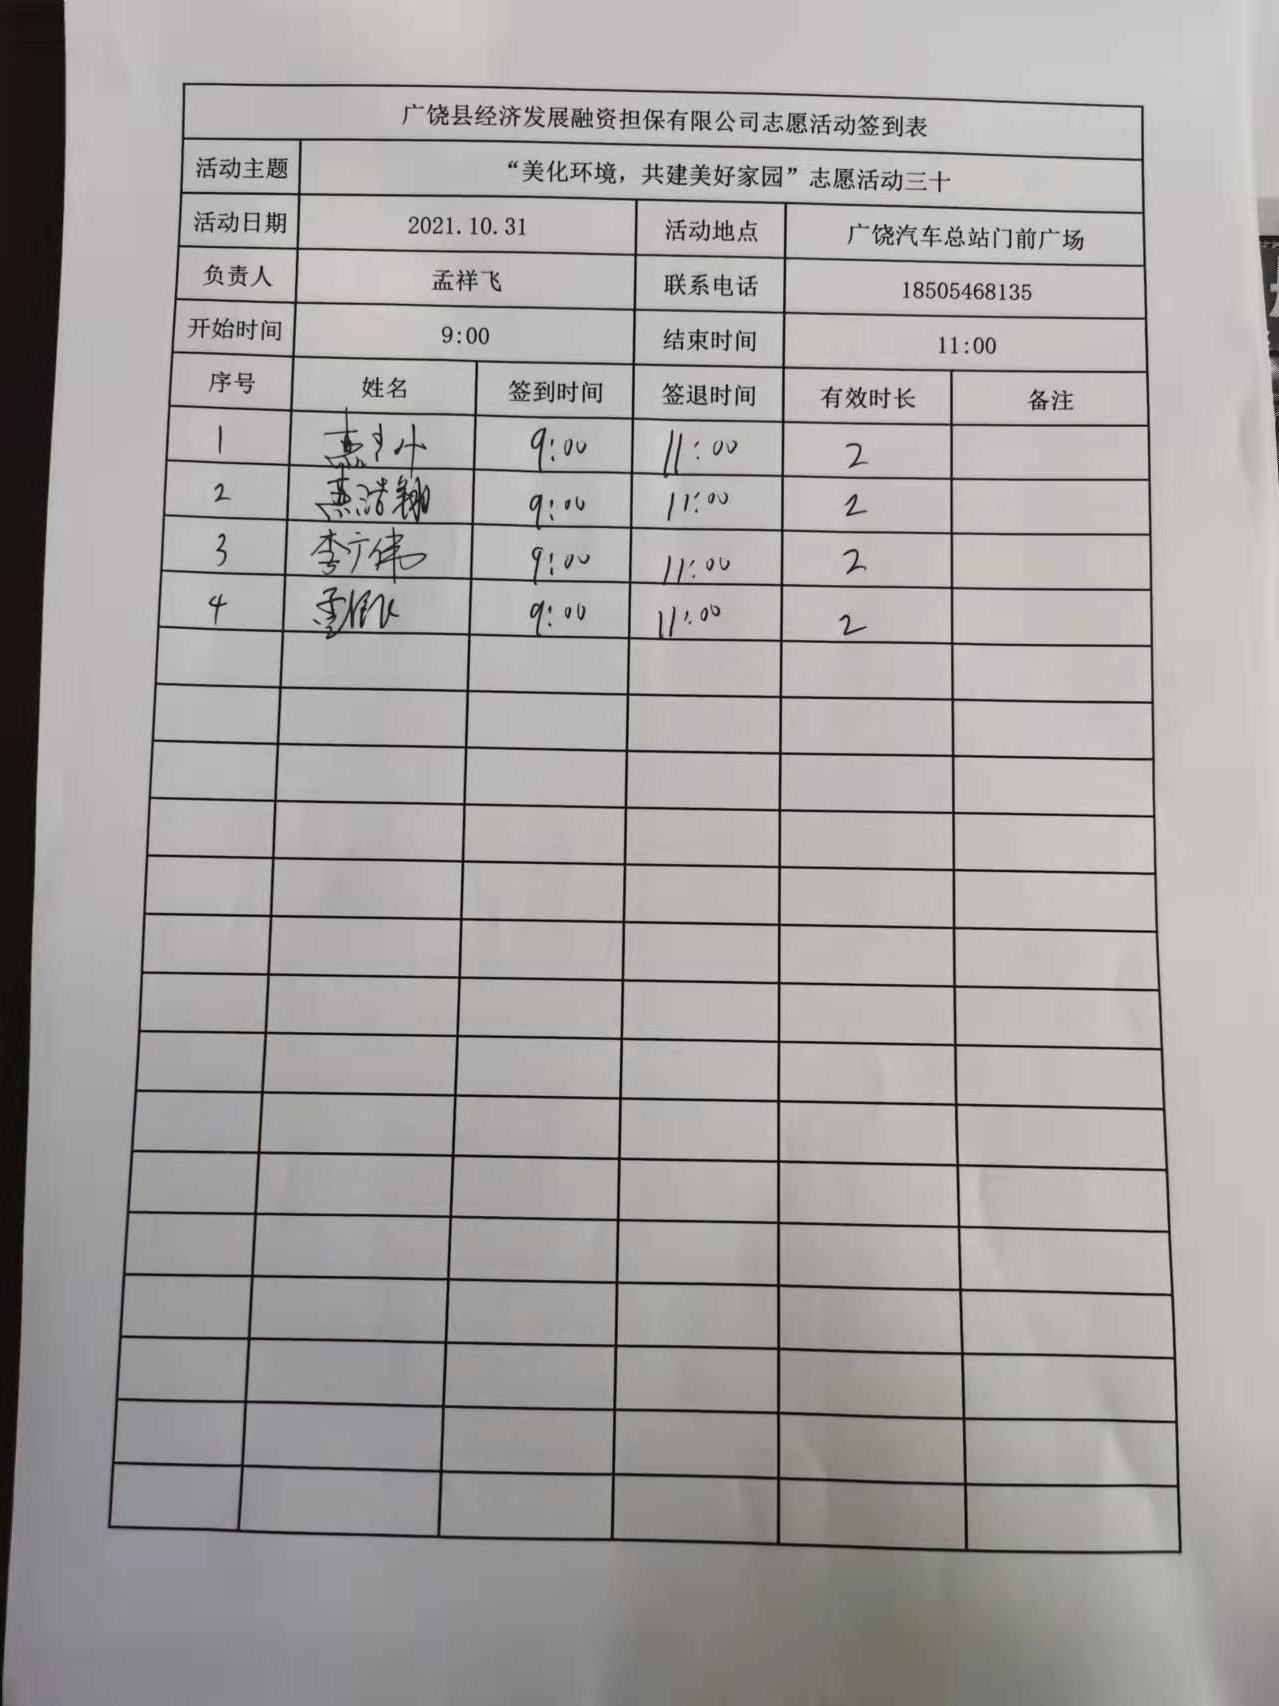 广饶县经济发展融资担保有限公司志愿活动签到表
活动主题 “美化环境，共建美好家园”志愿活动三十
活动日期 2021.10.31 活动地点 广饶汽车总站门前广场
负责人 孟祥飞 联系电话 18505468135
开始时间 9:00 结束时间 11:00
序号 姓名 签到时间 签退时间 有效时长 备注
1 9:00 11:00 2
2 燕浩翔 9:00 11:00 2
3 李广伟 9:00 11:00 2
4 9:00 11:00 2